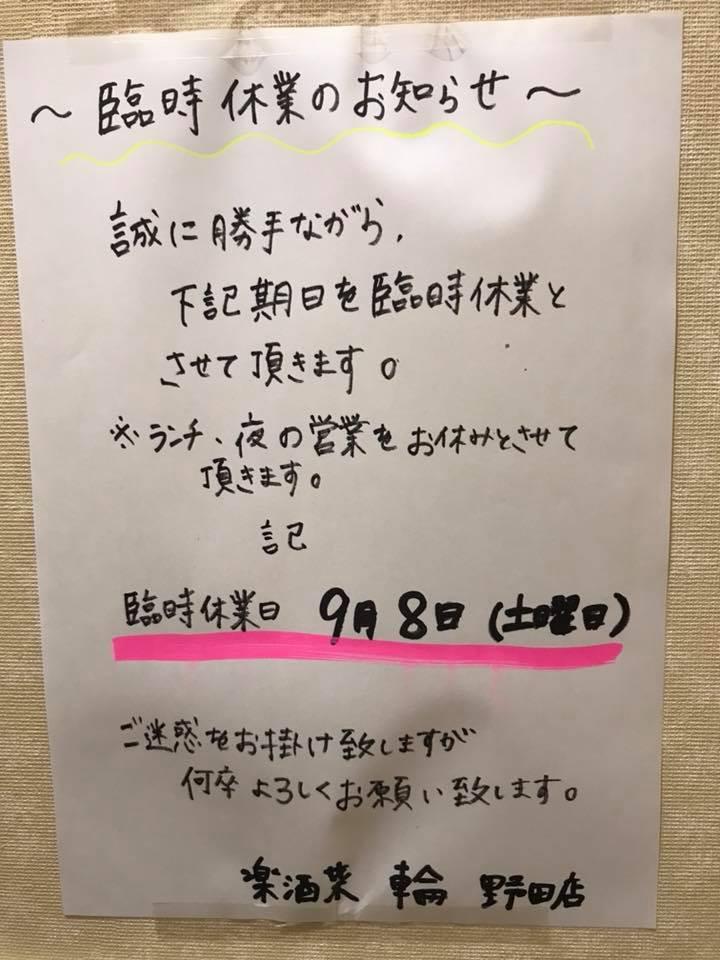 ～臨時休業のお知らせ～
誠に勝手ながら、
下記期日を臨時休業と
させて頂きます。
※ランチ、夜の営業をお休みとさせて
頂きます。
記
臨時休業日 9月8日(土曜日)
ご迷惑をお掛け致しますが
何卒よろしくお願い致します。
楽酒菜 輪 野田店